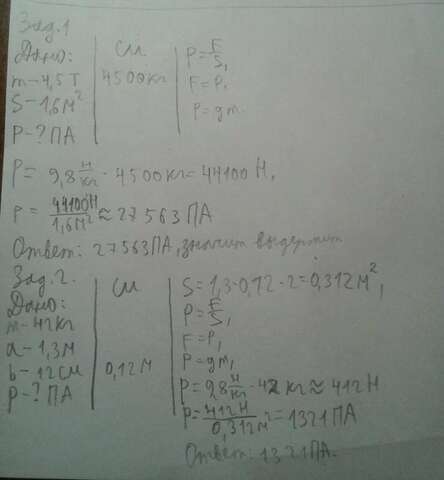 Зад.1
Дано:
m-4,5 т
S-1,6 м²
P-? ПА
СИ
4500кг
P=F/S,
F=P,
P=gm.
P= 9,8 н/кг · 4500кг=44100Н,
P= 44100Н/1,6м² ≈ 27563 ПА
Ответ: 27563ПА, значит выдержит
Зад.2.
Дано:
m-42кг
a-1,3м
b-12см
P-? ПА
СИ
0,12м
S=1,3·0,12·2=0,312м²,
P=F/S,
F=P,
P=gm,
P=9,8 н/кг · 42 кг≈412Н
P= 412Н/0,312м² =1321ПА
Ответ: 1321ПА.